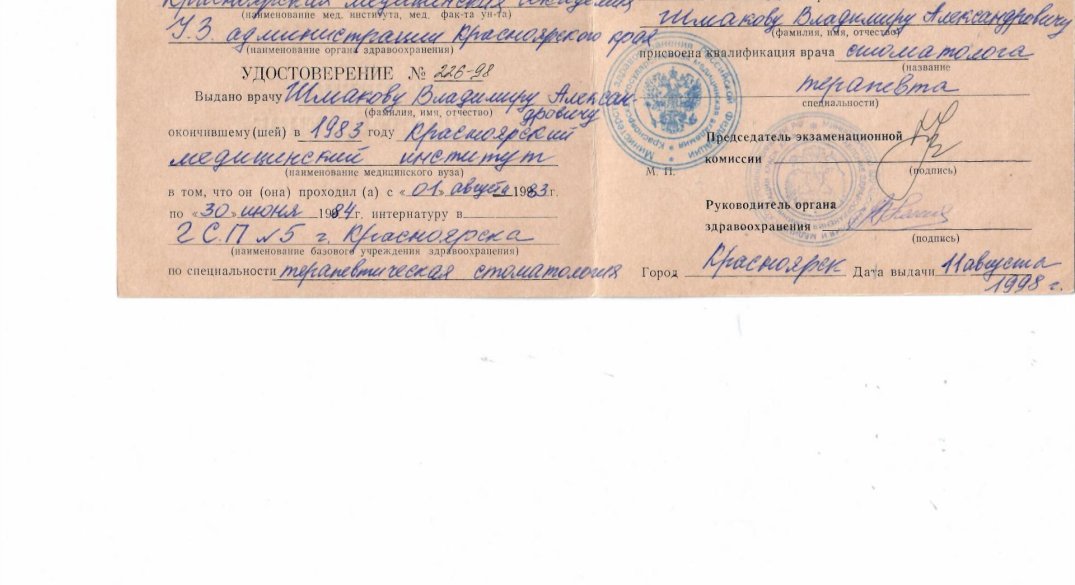 Красноярская медицинская академия
(наименование мед. института, мед. фак-та ун-та)
У.З. администрации Красноярского края
(наименование органа здравоохранения)
УДОСТОВЕРЕНИЕ № 226-98
Выдано врачу Шмакову Владимиру Алексан-
дровичу
(фамилия, имя, отчество)
окончившему(шей) в 1983 году Красноярский
медицинский институт
(наименование медицинского вуза)
в том, что он (она) проходил (а) с «01» августа 1983г.
по «30» июня 1984г. интернатуру в
ГСП №5 г. Красноярска
(наименование базового учреждения здравоохранения)
по специальности терапевтическая стоматология
Шмакову Владимиру Александровичу
(фамилия, имя, отчество)
присвоена квалификация врача стоматолога
(название
терапевта
специальности)
Председатель экзаменационной
комиссии
(подпись)
М. П.
Руководитель органа
здравоохранения
(подпись)
Город Красноярск Дата выдачи 11 августа
1998 г.